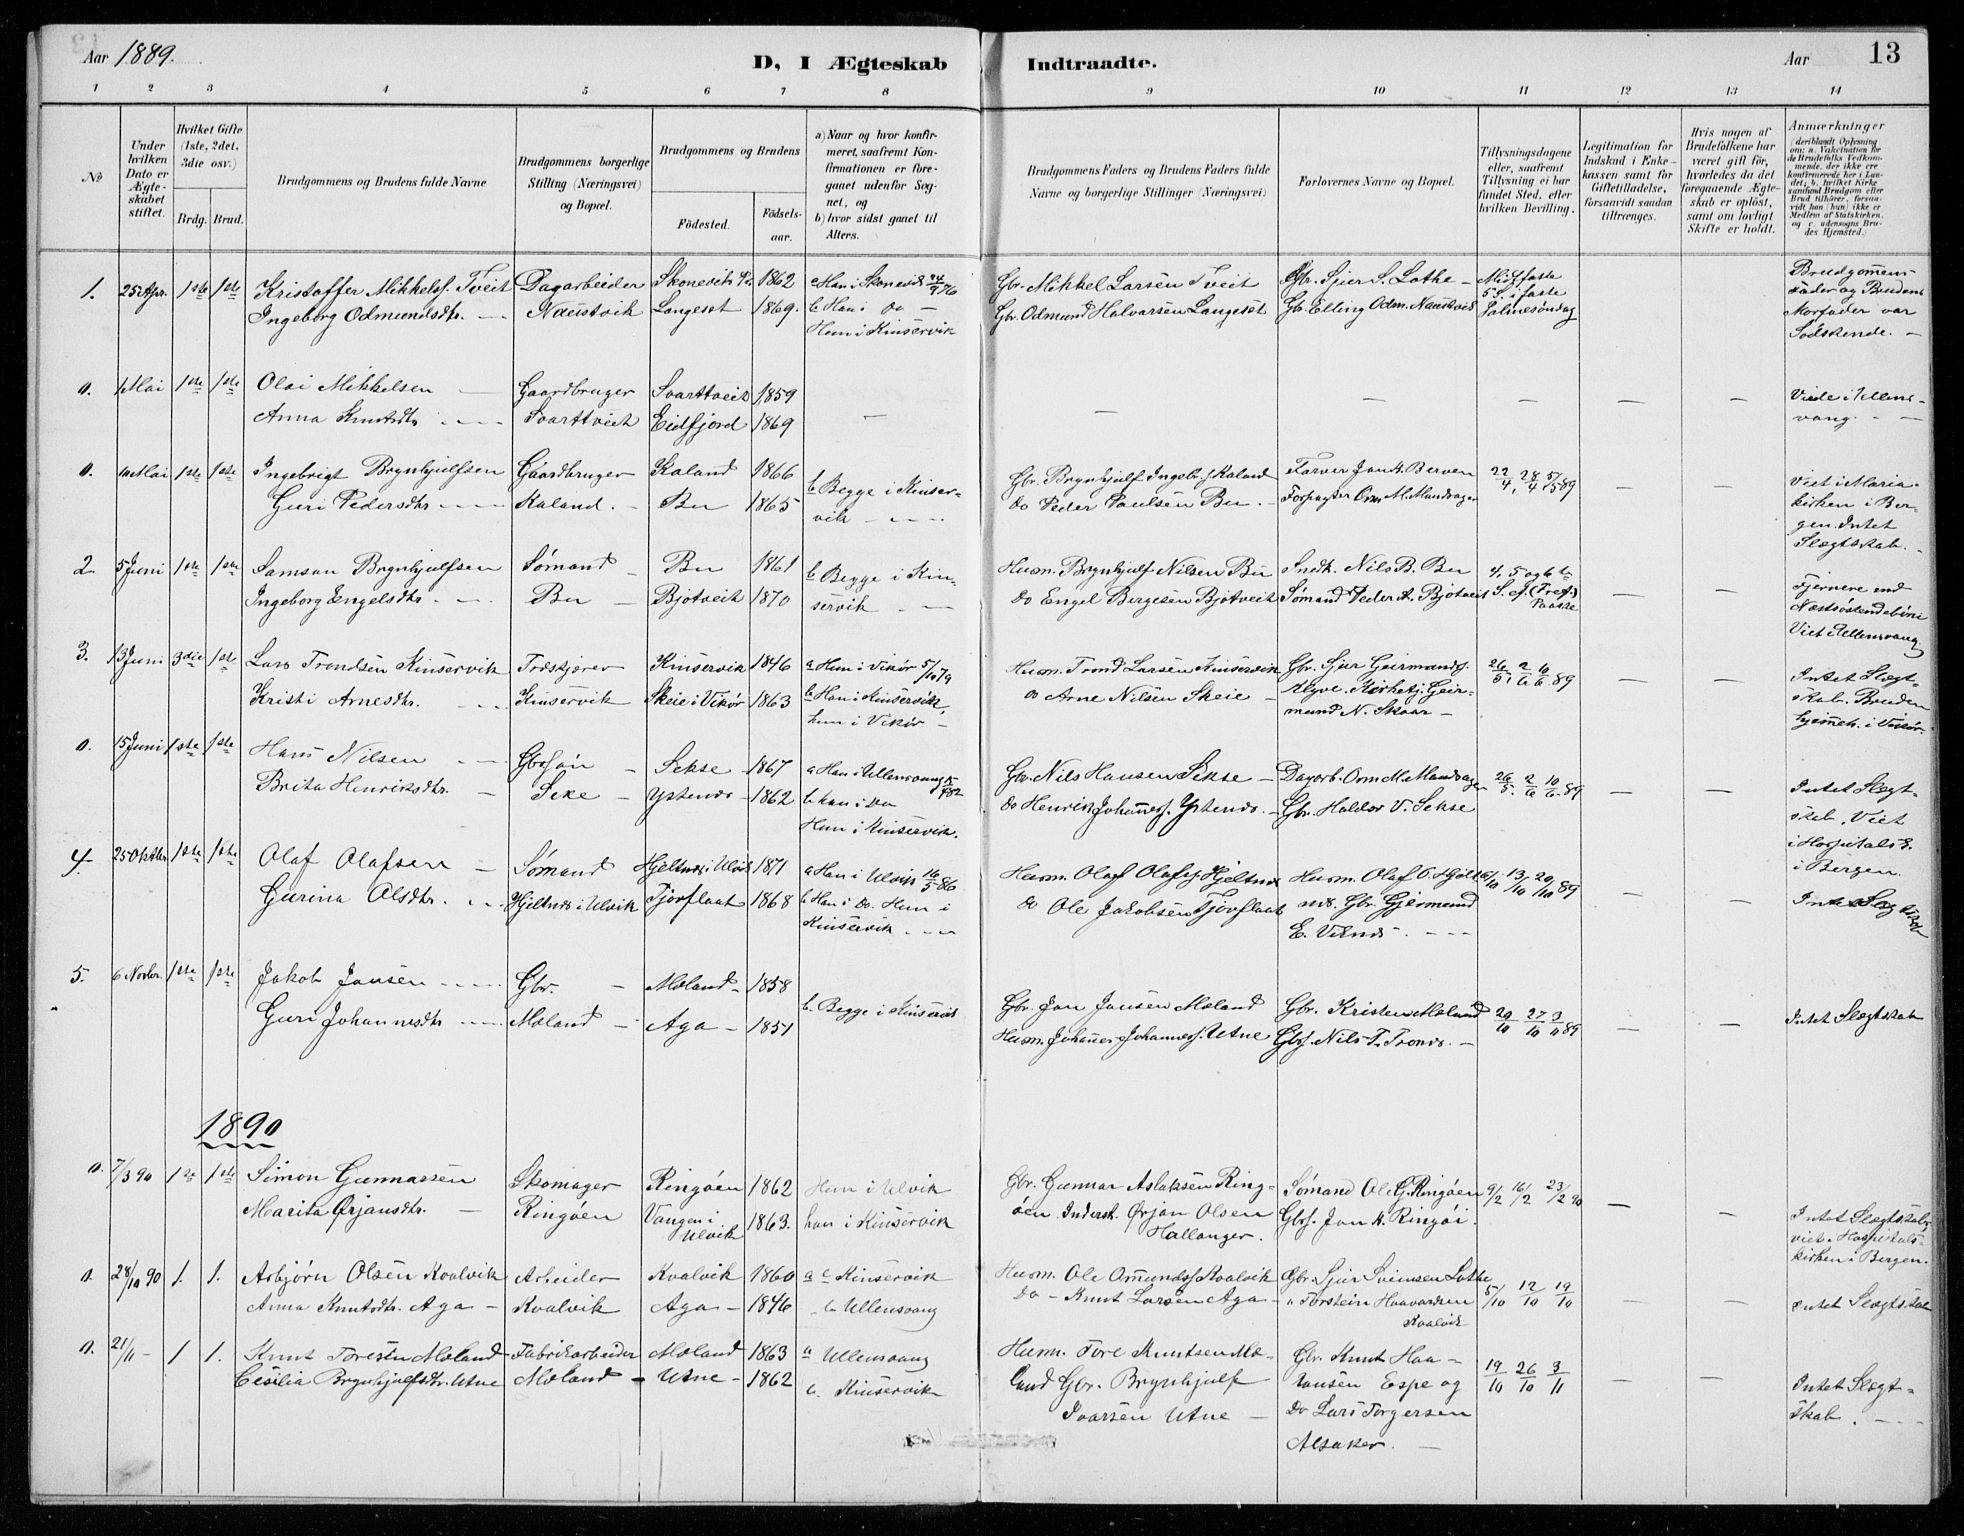 Aar 1889.
D, I Ægteskab Indtraadte.
Aar
13
1 2 3 4 5 6 7 8 9 10 11 12 13 14
No
Under hvilken Dato er Ægteskabet stiftet.
Hvilket Gifte (1ste, 2det, 3die osv.)
Brdg. Brud.
Brudgommens og Brudens fulde Navne
Brudgommens borgerlige Stilling (Næringsvei) og Bopæl.
Brudgommens og Brudens
Fødested.
Fødselsaar.
a) Naar og hvor konfirmeret, saafremt Konfirmationen er foregaaet udenfor Sognet, og
b) hvor sidst gaaet til Alters.
Brudgommens Faders og Brudens Faders fulde Navne og borgerlige Stillinger (Næringsvei)
Forlovernes Navne og Bopæl.
Tillysningsdagene eller, saafremt Tillysning ei har fundet Sted, efter hvilken Bevilling.
Legitimation for Indskud i Enkekassen samt for Giftetilladelse, forsaavidt saadan tiltrænges.
Hvis nogen af Brudefolkene har været gift før, hvorledes da det foregaaende Ægteskab er opløst, samt om lovligt Skifte er holdt.
Anmærkninger
(deriblandt Oplysning om: a. Vakcination for de Brudefolks Vedkommende, der ikke ere konfirmerede her i Landet; b. hvilket Kirkesamfund Brudgom eller Brud tilhører, forsaavidt han (hun) ikke er Medlem af Statskirken, og c. udensogns Brudes Hjemsted.)
1. 25 Apr. 1ste 1ste Kristoffer Mikkels. Tveit Dagarbeider Skonevik 1862 a Han i Skonevik 24/9 76 Gbr. Mikkel Larsen Tveit Gbr. Sjur S. Lothe – Midfaste Brudgommens
Ingeborg Odmundsdtr. – Naustvik Langeset 1869. b Han i do – Gbr. Odmund Halvarsen Langeset Gbr. Elling Odm. Naustvik 5 S. i faste Fader og Brudens
Hun i Kinservik Palmesøndag Morfader var
Sødskende. –
0. 1 Mai 1ste 1ste Olai Mikkelsen – Gaardbruger Svarttveit 1859 Viede i Ullens-
Anna Knutsdtr – Svarttveit Eidfjord 1869 – – – – – – vang. –
0. 10 Mai 1ste 1ste Ingebrigt Brynhjulfsen Gaardbruger Kaland 1866 b Begge i Kinser- Gbr. Brynhjulf Ingebr. Kaland Farver Jon K. Berven 22/4, 28/4 5/5 89 – – Viet i Maria-
Guri Pedersdtr – Kaland. – Bu 1865 vik – Do Peder Poulsen Bu. – Forpagter Orm M. Mandrager kirken i Ber-
gen. Intet
Slegtskab. –
2. 5 Juni 1ste 1ste Samson Brynhjulfsen Sømand – Bu 1861 b Begge i Kin- Husm. Brynhjulf Nilsen Bu Snedk. Nils B. Bu 4, 5 og 6te – – Fjernere end
Ingeborg Engelsdtr. – Bu – Bjotveit 1870 servik – Do Engel Bergesen Bjotveit Sømand Peder A. Bjotveit S. ef. (Tref.) Paaske Næstsøskendebørn
Viet i Ullensvang
3. 13 Juni 3die 1ste Lars Trondsen Kinservik Træskjærer Kinservik 1846 a Hun i Vikør 5/10 79 Husm. Trond Larsen Kinservik Gbr. Sjur Geirmunds. 26/5, 2/6 10/6 89 Intet Slegt-
Kristi Arnesdtr. – Kinservik Skeie i Vikør 1863 b Han i Kinservik, Do Arne Nilsen Skeie – Alyve. Kirketj. Geir- skab. Bruden
hun i Vikør – mund N. Skaar – hjemeh. i Vikør.
0. 15 Juni 1ste 1ste Hans Nilsen – Gbrsøn – Sekse – 1867 a Han i Ullensvang Gbr. Nils Hansen Sekse – Dagarb. Orm M. Mandrager 26/5. 2/6 10/6. 89 – – Intet Slegt-
Brita Henriksdtr. – Sexe – Ystenes – 1862 b han i Do Do Henrik Johannes. Ystenes. – Gbr. Haldor V. Sekse skab. Viet
Hun i Kinservik. i Hospitals K.
i Bergen.
4. 25 Oktbr 1ste 1ste Olaf Olafsen – Sømand Hjeltnes i Ulvik 1871 a Han i Ulvik 16/5 86 Husm. Olaf Olafs. Hjeltnes Husm. Olaf O. Hjelt- 6/10 13/10 20/10 89 – – Intet Slegtskab
Gurina Olsdtr. – Hjeltnes i Ulvik Tjoflaat 1868 b Han i Do. Hun i Do Ole Jakobsen Tjoflaat nes. Gbr. Gjermund
Kinservik – E. Viknes. –
5. 6 Novbr. 1ste 1ste Jakob Jansen – Gbr. – Moland – 1858 b. Begge i Kinservik Gbr. Jan Jansen Moland Gbr. Kristen Moland 20/10 27/10 3/11 89 – – Intet Slegtskab
Guri Johannesdtr – Moland – Aga – 1851 Husm. Johannes Johannes. Utne Gbs. Nils T. Trones. –
1890
0. 7/3 90 1ste 1ste Simon Gunnarsen Skomager Ringøen 1862 Hun i Ulvik Gbr. Gunnar Aslaksen Ring- Sømand Ole G. Ringøen 9/2 16/2 23/2 90 – – Intet Slegtskab,
Marita Ørjansdtr. – Ringøen Vangen i Ulvik 1863. han i Kinservik øen. Inderst. Ørjan Olsen Gbs. Jon K. Ringøi. viet i Hospitals-
Hallanger. kirken i Bergen.
0. 28/10 90 1. 1. Asbjørn Olsen Kvalvik Arbeider Kvalvik 1860 a Kinservik Husm. Ole Omunds. Kvalvik Gbr. Sjur Svensen Lothe 5/10 12/10 19/10 – – Intet Slegtskab
Anna Knutsdtr. Aga – Kvalvik Aga – 1846 b Ullensvang Do – Knut Larsen Aga – " Torstein Haavardsen Kvalvik
0. 21/11 – 1 1. Knut Toresen Moland Fabrikarbeider Moland 1863 a Ullensvang Husm. Tore Knutsen Mo- Gbr. Knut Haa- 19/10 26/10 3/11 – – Intet Slegt-
Cesilia Brynhjulfsdtr. Utne Moland – Utne – 1862 b. Kinservik land Gbr. Brynhjulf vansen Espe og skab. –
Ivarsen Utne – Do Lars Torgersen
Alsaker. –